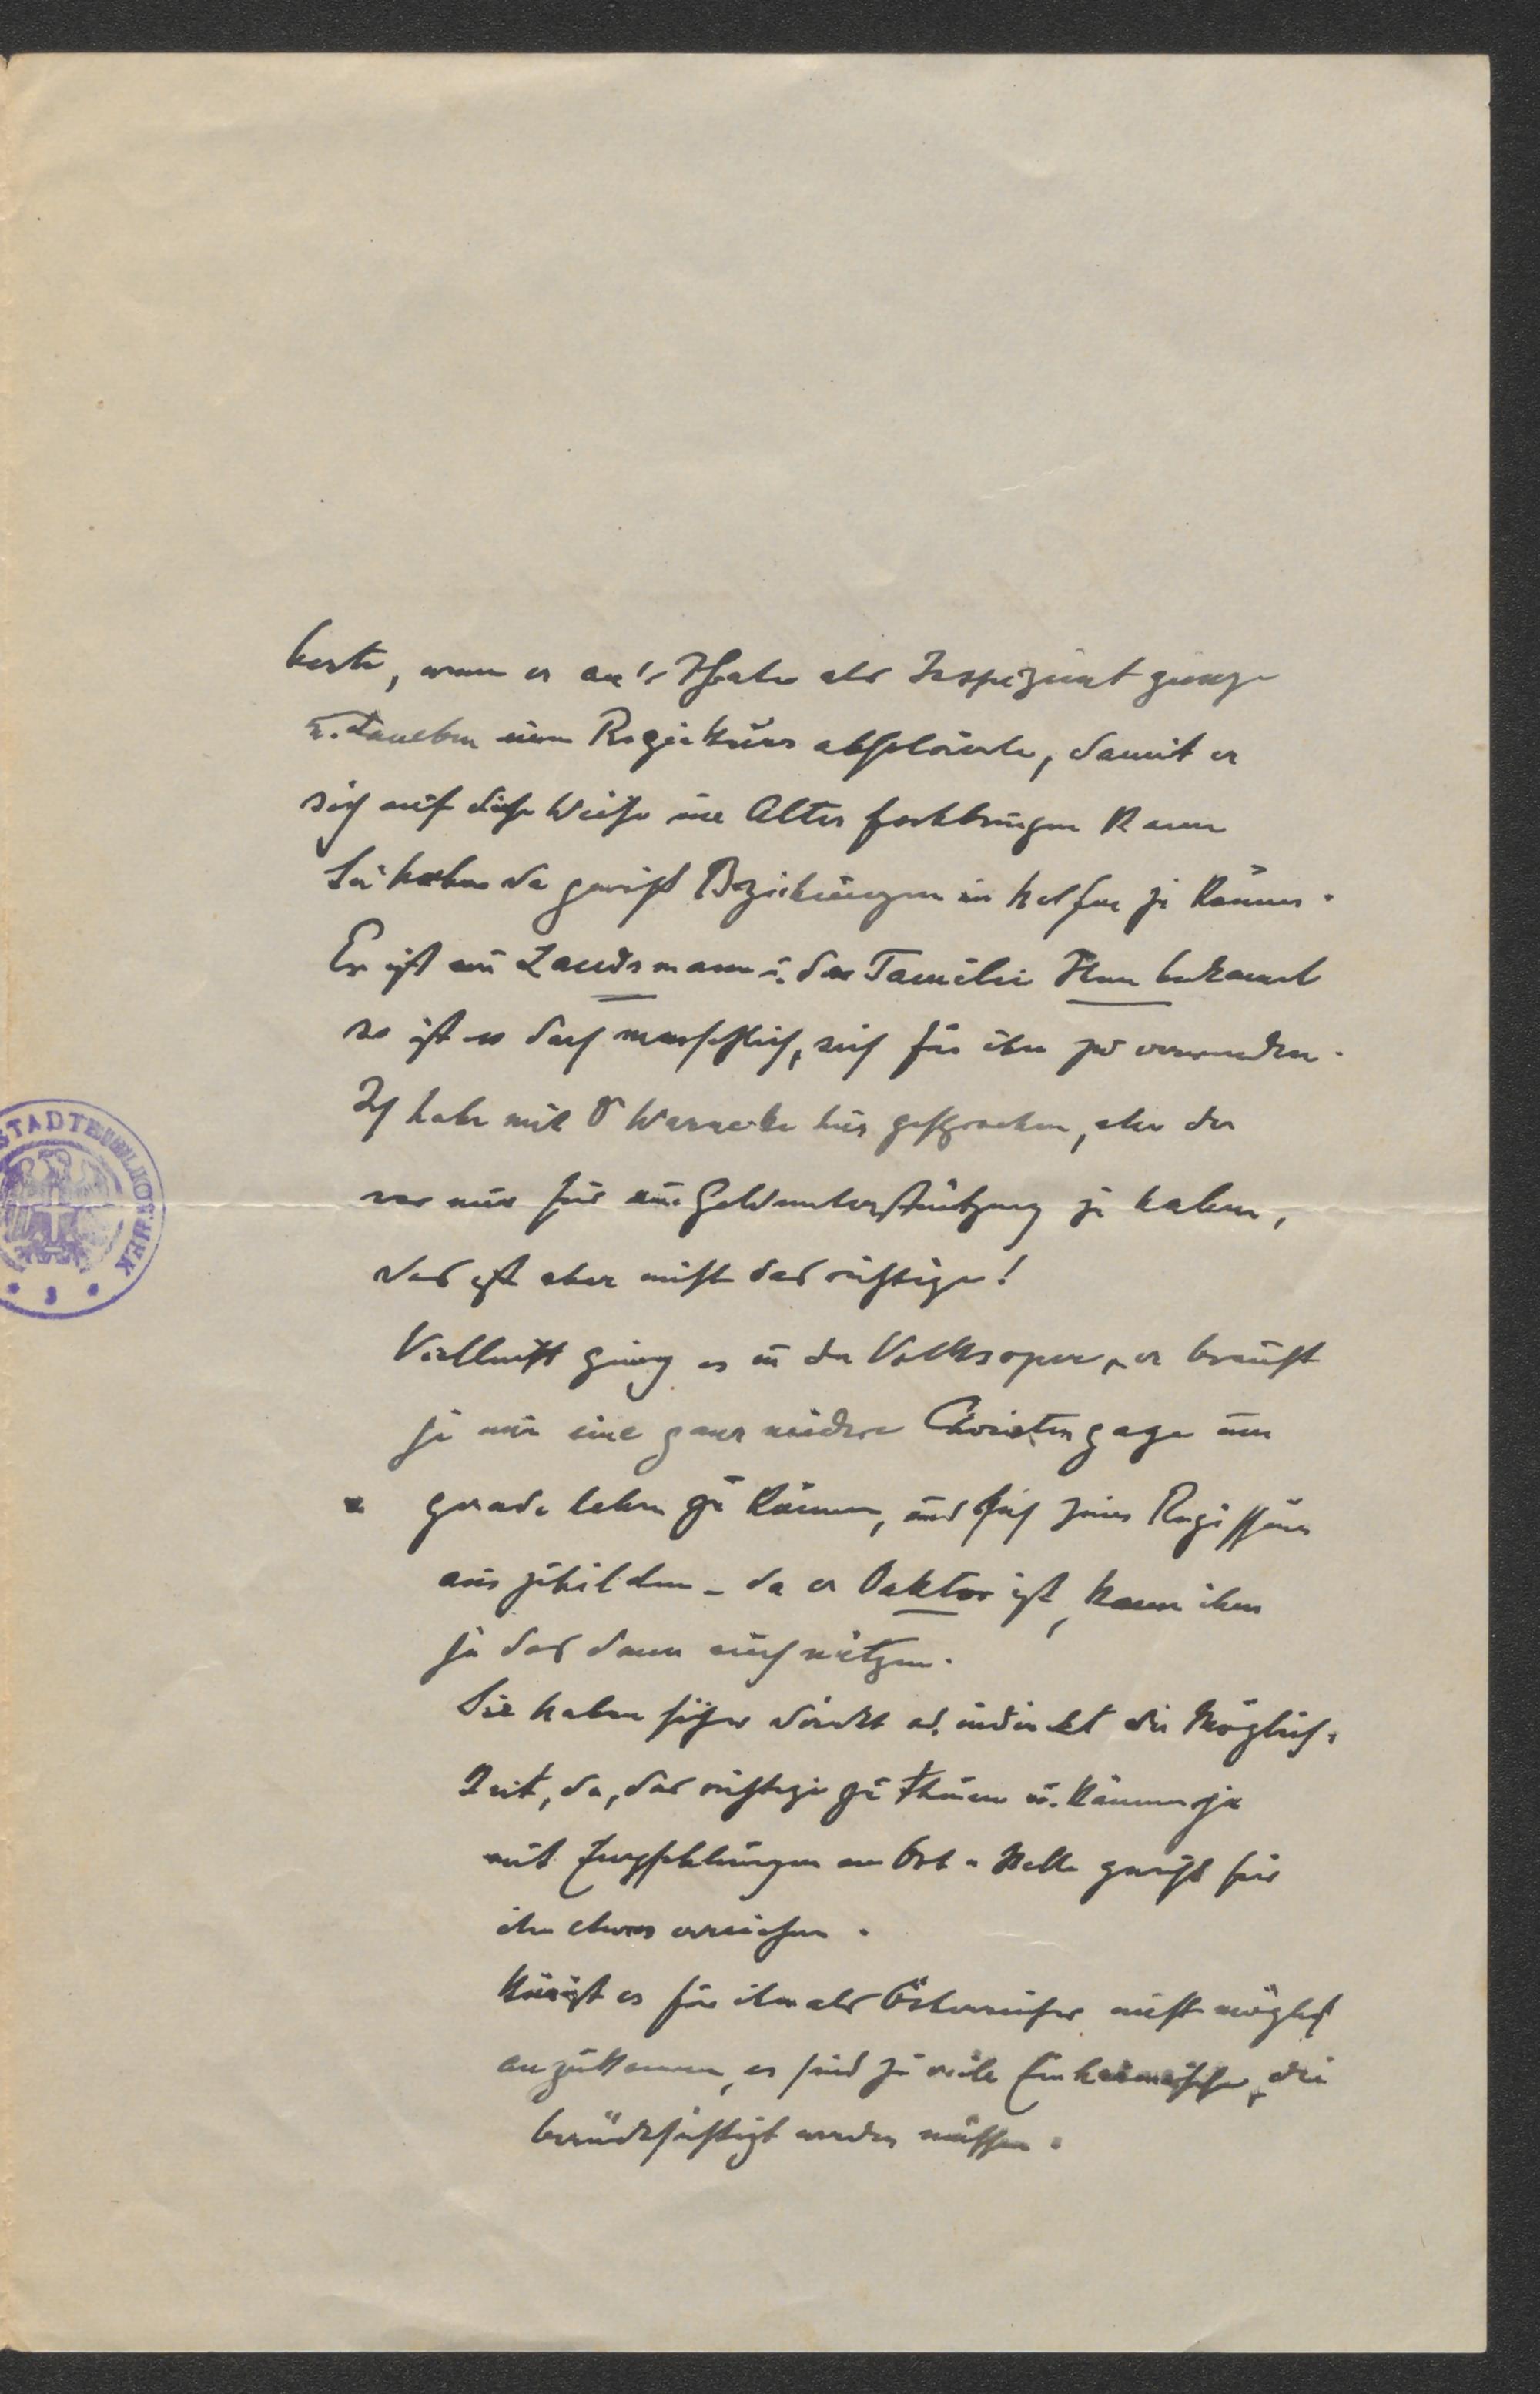 beste, wenn er an's Theater als Inspizient ginge
u. daneben einen Regiekurs absolvierte, damit er
sich auf diese Weise im Alter fortbringen kann
Sie haben da gewiss Beziehungen ihm helfen zu können.
Er ist ein Landsmann u. der Familie Ihnen bekannt
so ist es doch menschlich, sich für ihn zu verwenden.
Ich habe mit D Warnecke hier gesprochen, aber der
war nur für eine Geldunterstützung zu haben,
das ist aber nicht das richtige!
Vielleicht ging es in der Volksoper, er braucht
ja nur eine ganz niedere Choristengage um
gerade leben zu können, und sich zum Regisseur
auszubilden – da er Doktor ist, kann ihm
ja das dann auch nützen.
Sie haben sicher direkt od. indirekt die Möglich-
keit, da, das richtige zu thuen u. können ja
mit Empfehlungen an Ort u Stelle gewiss für
ihn etwas erreichen.
hier ist es für ihn als Österreicher nicht möglich
anzukommen, es sind zu viele Einheimische, die
berücksichtigt werden müssen.
STADTBIBLIOTHEK